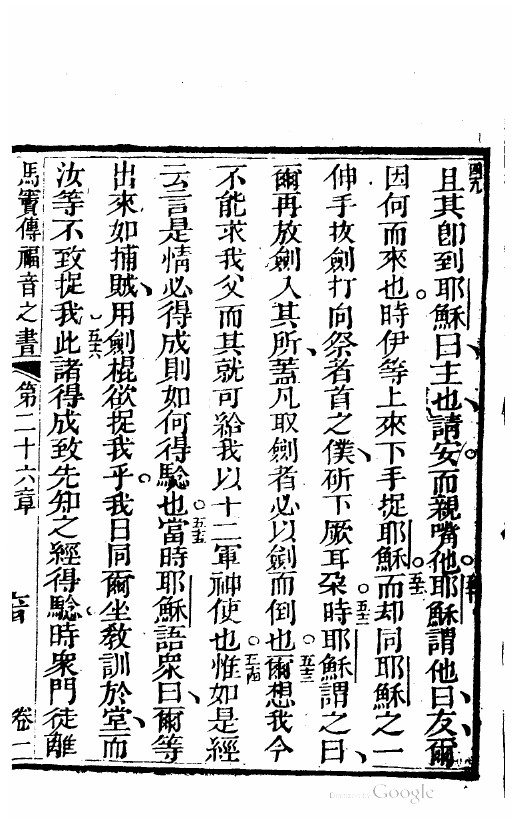 四九
且其卽到耶穌曰主也請安而親嘴他耶穌謂他曰友爾
因何而來也時伊等上來下手捉耶穌五一而却同耶穌之一
伸手拔劍打向祭者首之僕斫下厥耳朶五二時耶穌謂之曰
爾再放劍入其所蓋凡取劍者必以劍而倒也五三爾想我今
不能求我父而其就可給我以十二軍神使也五四惟如是經
云言是情必得成則如何得驗也五五當時耶穌語衆曰爾等
出來如捕賊用劍棍欲捉我乎我日同爾坐敎訓於堂而
汝等不致捉我五六此諸得成致先知之經得驗時衆門徒離
馬竇傳福音之書 第二十六章 卷一
Digitized by Google